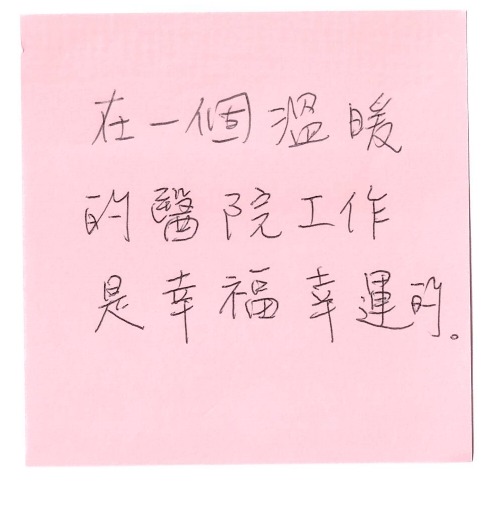 在一個溫暖
的醫院工作
是幸福幸運的。